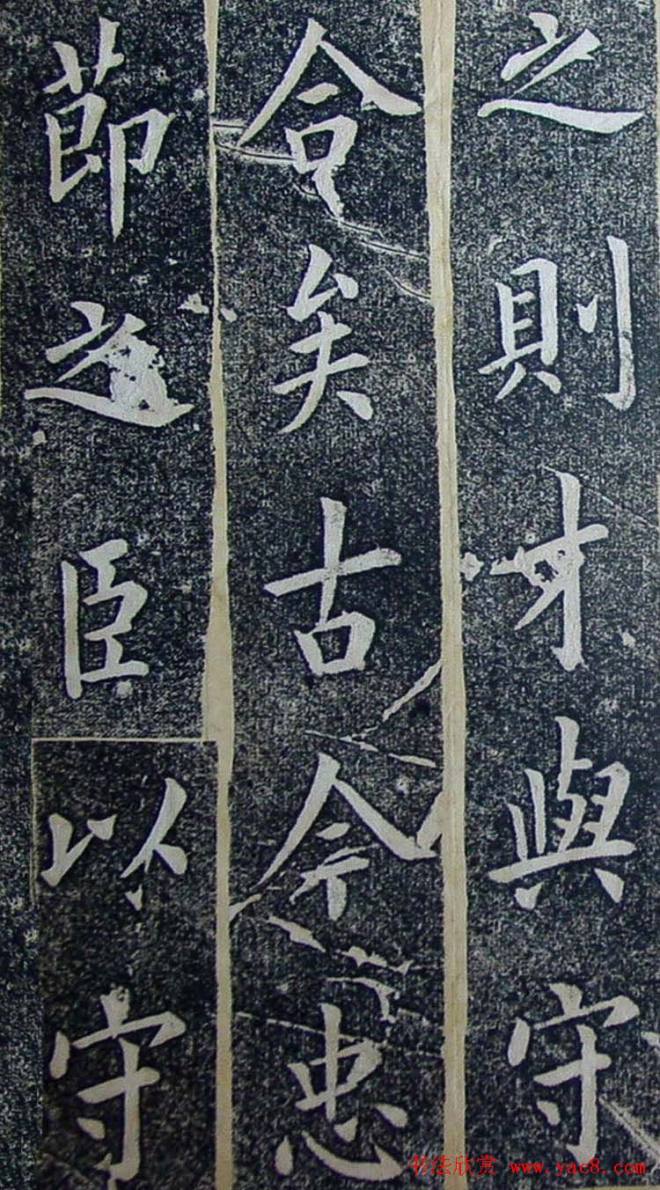 之則才與守
合矣古今忠
節之臣以守
书法欣赏 www.yac8.com